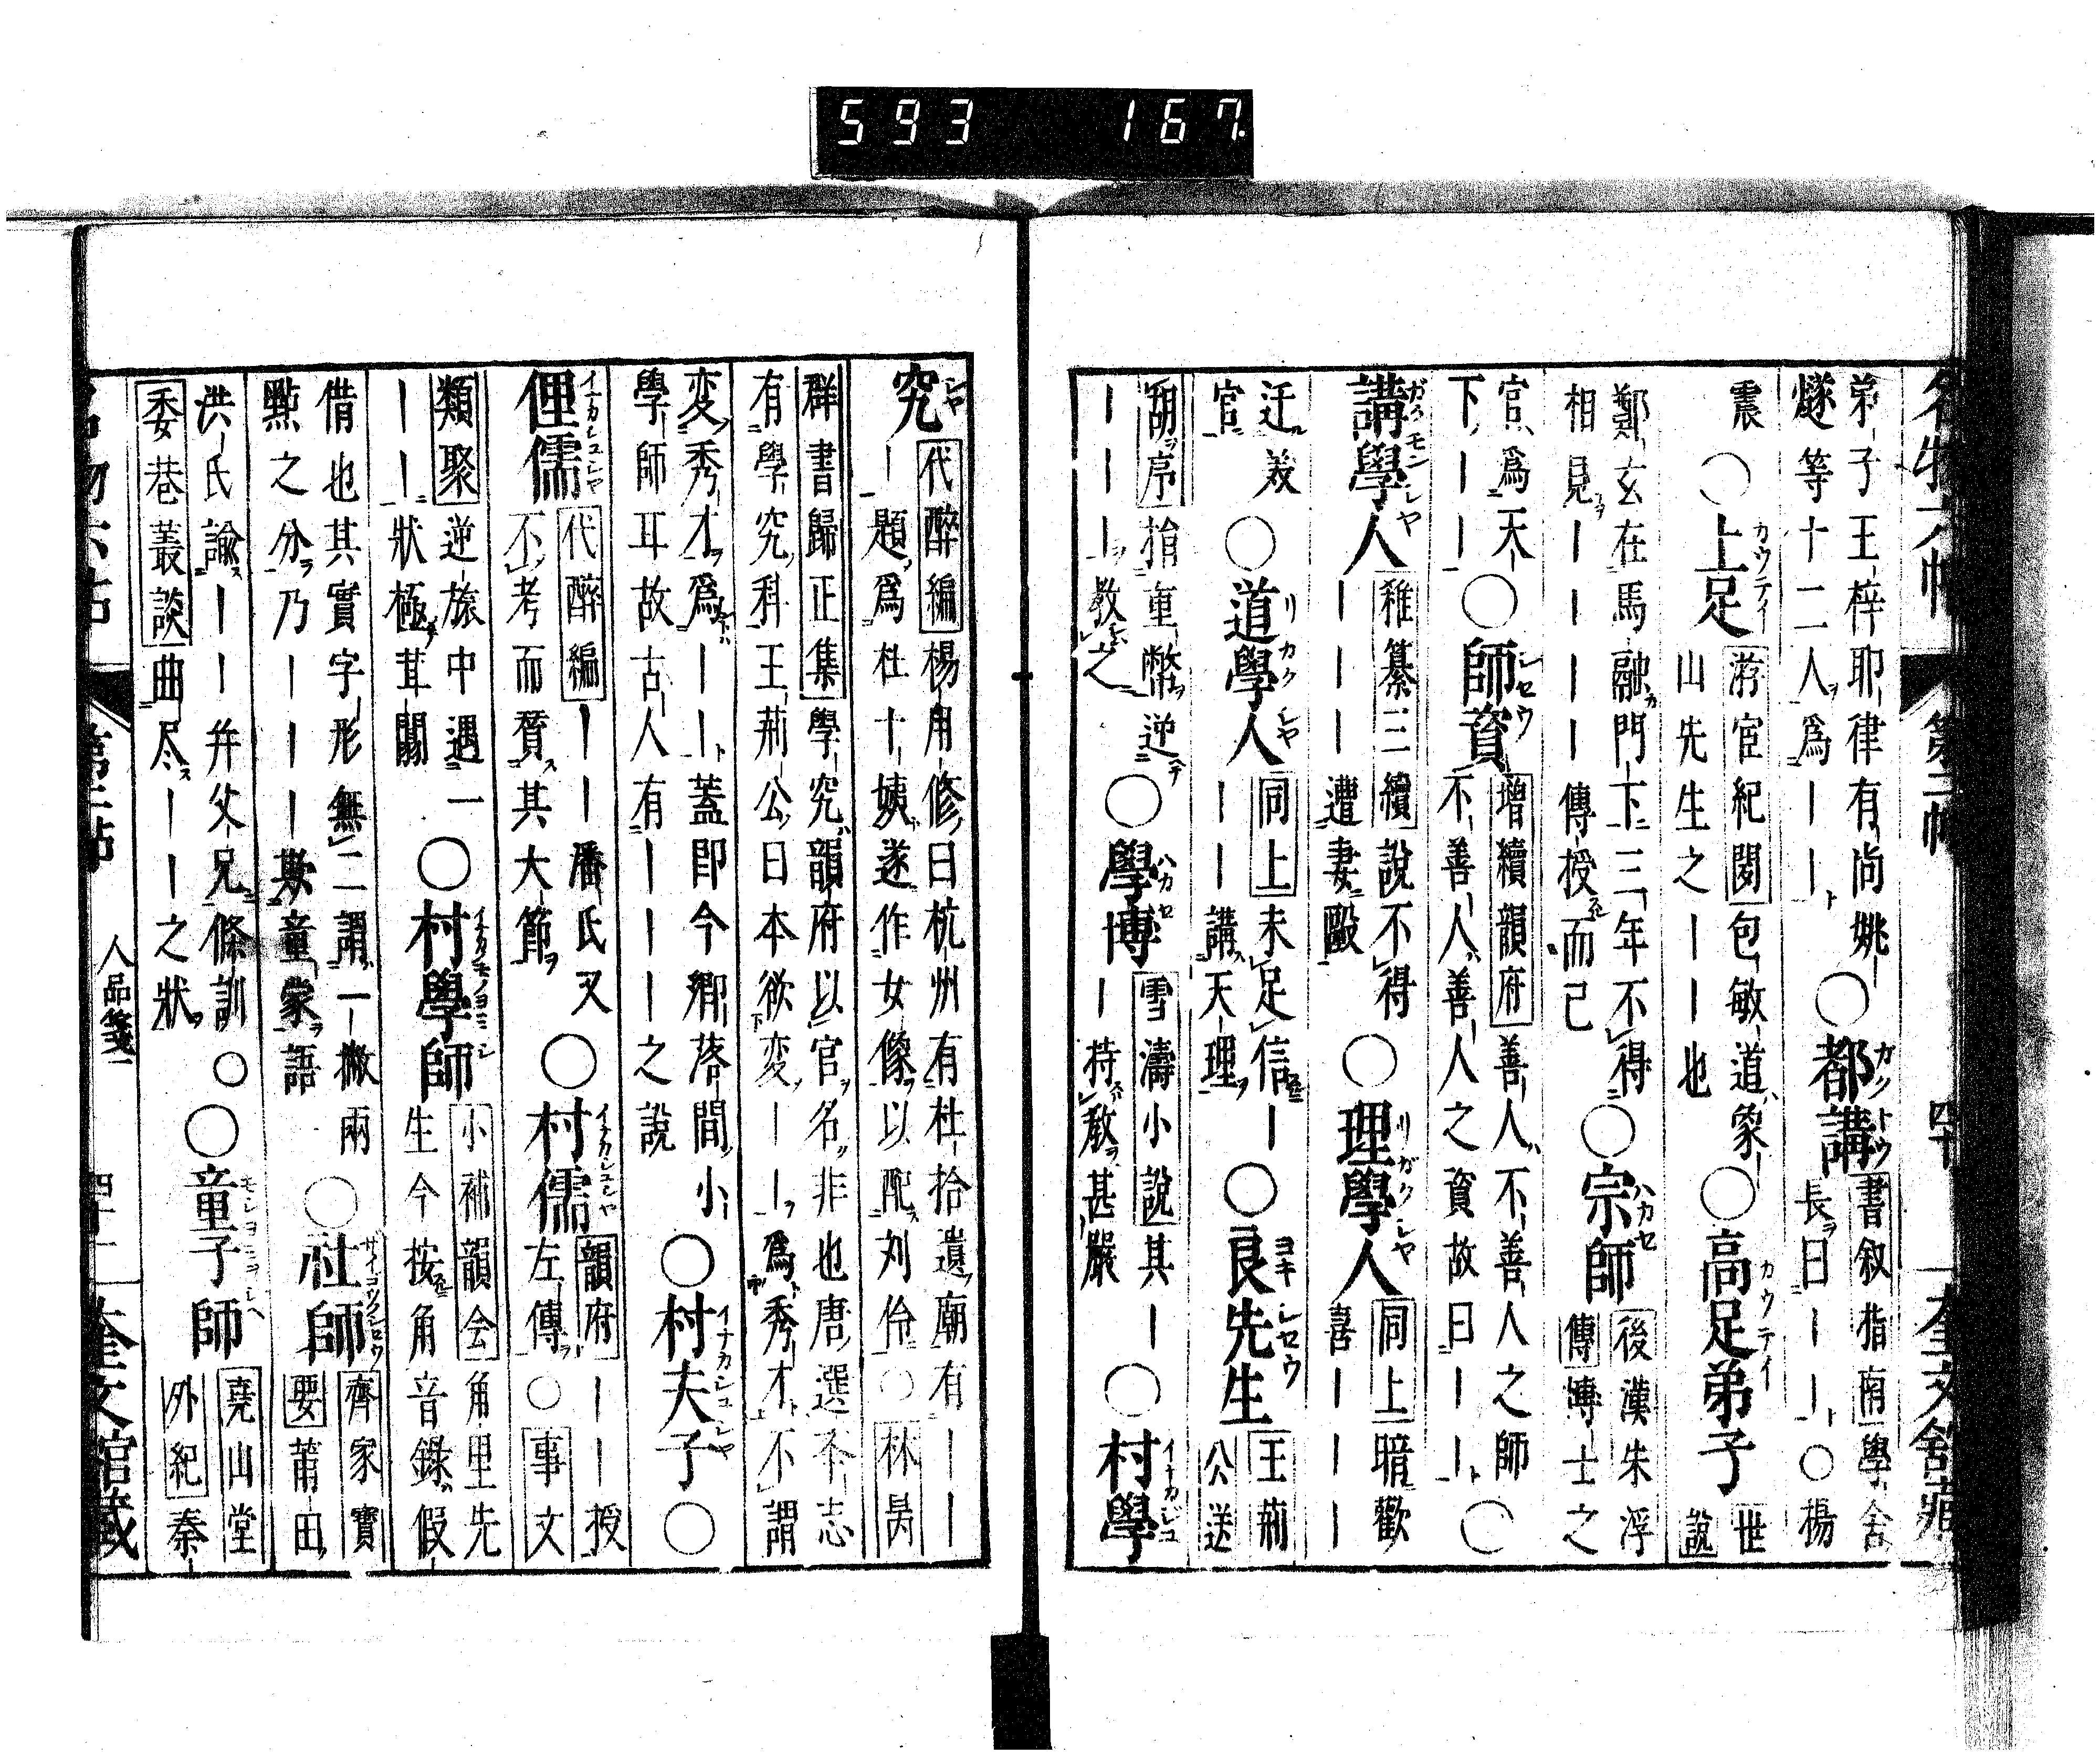 593 167
名物六帖 第二帖 四十 奎文舘藏
弟子王梓耶律有尚姚燧等十二人爲｜｜〇都講書叙指南學舍長曰｜｜〇楊
震〇上足游宦紀聞包敏道象山先生之｜｜也〇高足弟子世說
鄭玄在馬融門下三年不得相見｜｜｜｜傳授而已〇宗師後漢朱浮傳博士之
官爲天下｜｜〇師資增續韻府善人不善人之師不善人善人之資故曰｜｜〇
講學人雜纂三續說不得｜｜｜遭妻毆〇理學人同上暗歡喜｜｜｜
迂美官〇道學人同上未足信｜｜｜講天理〇良先生王荊公送
胡序揹重幣逆｜｜｜教之〇學博雪濤小說其｜｜持教甚嚴〇村學
究代醉編楊用修曰杭州有杜拾遺廟有｜｜｜題爲杜十姨遂作女像以配刘伶〇林昺
群書歸正集學究韻府以官名非也唐選本志有學究科王荊公曰本欲変｜｜爲秀才不謂
変秀才爲｜｜蓋即今鄉落間小學師耳故古人有｜｜｜之說〇村夫子〇
俚儒代醉編｜｜潘氏又不考而贅其大節〇村儒韻府｜｜授左傳〇事文
類聚逆旅中遇一｜｜狀極茸闒〇村學師小補韻会角里先生今按角音錄假
借也其實字形無二謂一撇兩點之分乃｜｜｜欺童蒙語〇社師齊家寶要莆田
洪氏諭｜｜幷父兄條訓〇委巷叢談曲尽｜｜之狀〇童子師堯山堂外紀秦
名物六帖 第二帖 人品箋一 四十一 奎文舘藏